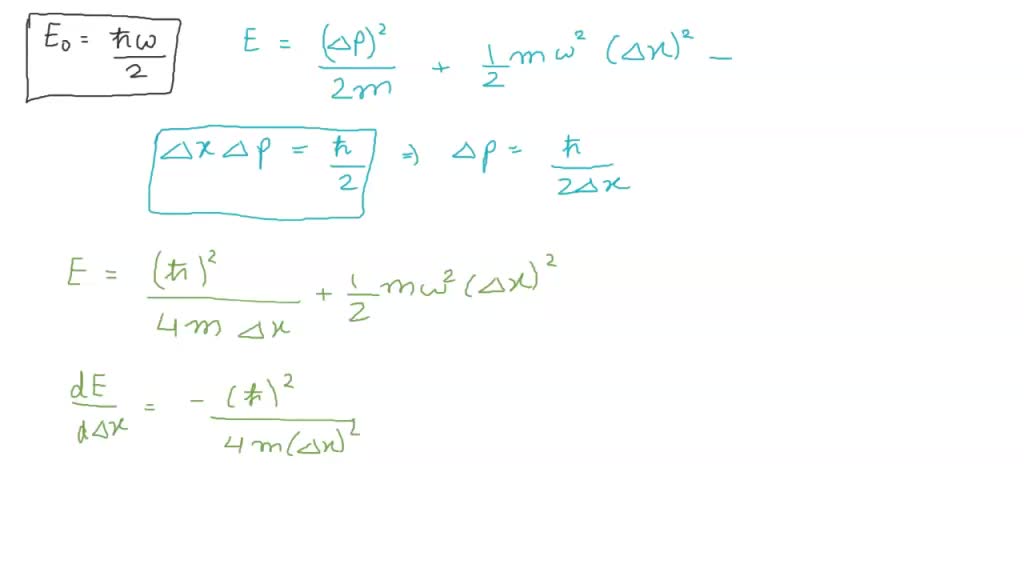 E₀ = ħω/2 E = (Δp)²/2m + 1/2 mω² (Δx)² —
Δx Δp = ħ/2 ⇒ Δp = ħ/2Δx
E = (ħ)²/4m Δx + 1/2 mω² (Δx)²
dE/dΔx = - (ħ)²/4m(Δx)²